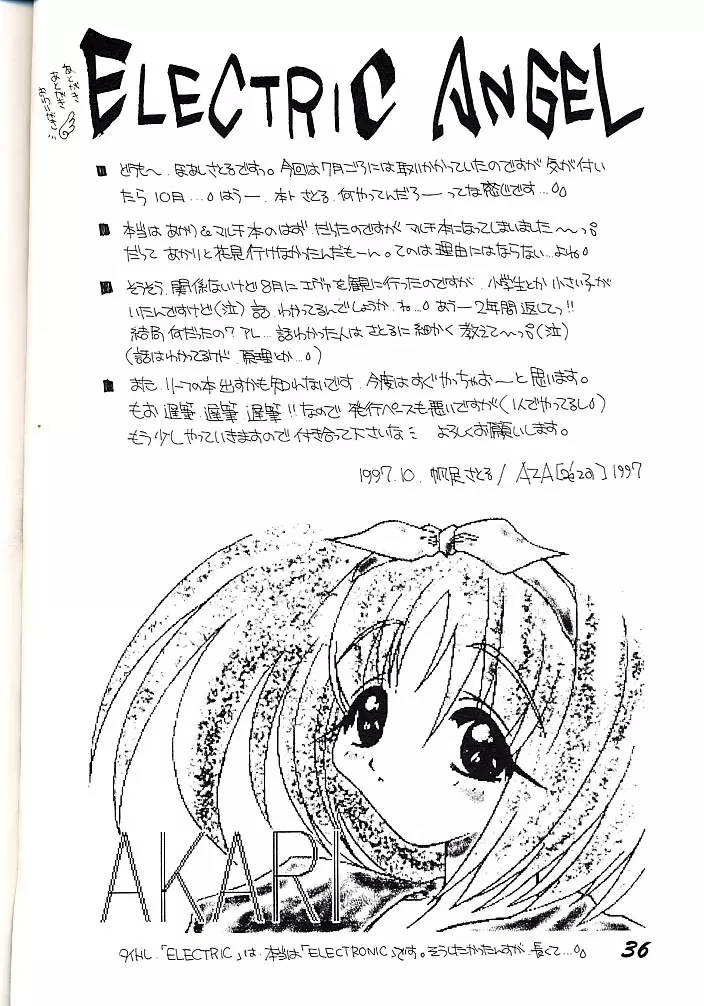 ELECTRIC ANGEL
あとがき
あとがき
■ どうも〜、ほあしさとるですっ。今回は7月ごろには取りかかっていたのですが気が付い
たら10月…。はうー、本ト さとる、何やってんだろーってな感じです…。
■ 本当はあかり&マルチ本のはず だったのですが マルチ本になってしまいました〜っ。
だって あかりと花見行けなかったんだもーん。てのは理由にはならない…よね。
■ そうそう、関係ないけど8月にエヴァを観に行ったのですが、小学生とか小さい子が
いたんですけど(泣)話、わかってるんでしょうか、ね…。あうー2年間返してっ!!
結局何だったの?アレ…話わかった人はさとるに細かく教えて〜っ。(泣)
(話はわかってるけど、原理とか…。)
■ またリーフの本出すかも知れないです、今度はすぐやっちゃおーと思います。
もお遅筆、遅筆、遅筆!!なので 発行ペースも悪いですが(1人でやってるし。)
もう少しやっていきますので付き合って下さいな よろしくお願いします。
1997.10. 帆足さとる/AZA 1997
AKARI
タイトル「ELECTRIC」は、本当は「ELECTRONIC」です。そうしたかったんすが、長くて…。
36